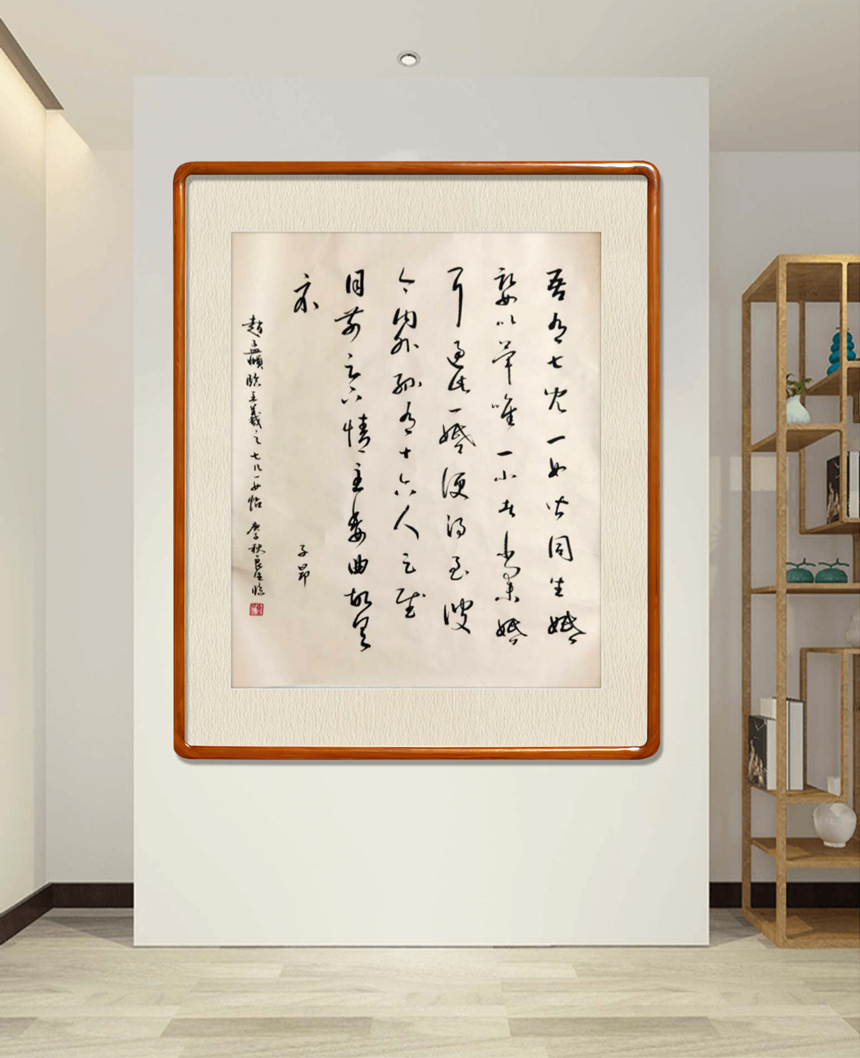 吾有七兒一女皆同生婚
娶以畢唯一小者尚未婚
耳過此一婚便得至彼
今內外孫有十六人足慰
目前足下情至委曲故具
示
子昂
趙孟頫臨王羲之七儿一女帖 秋良生臨